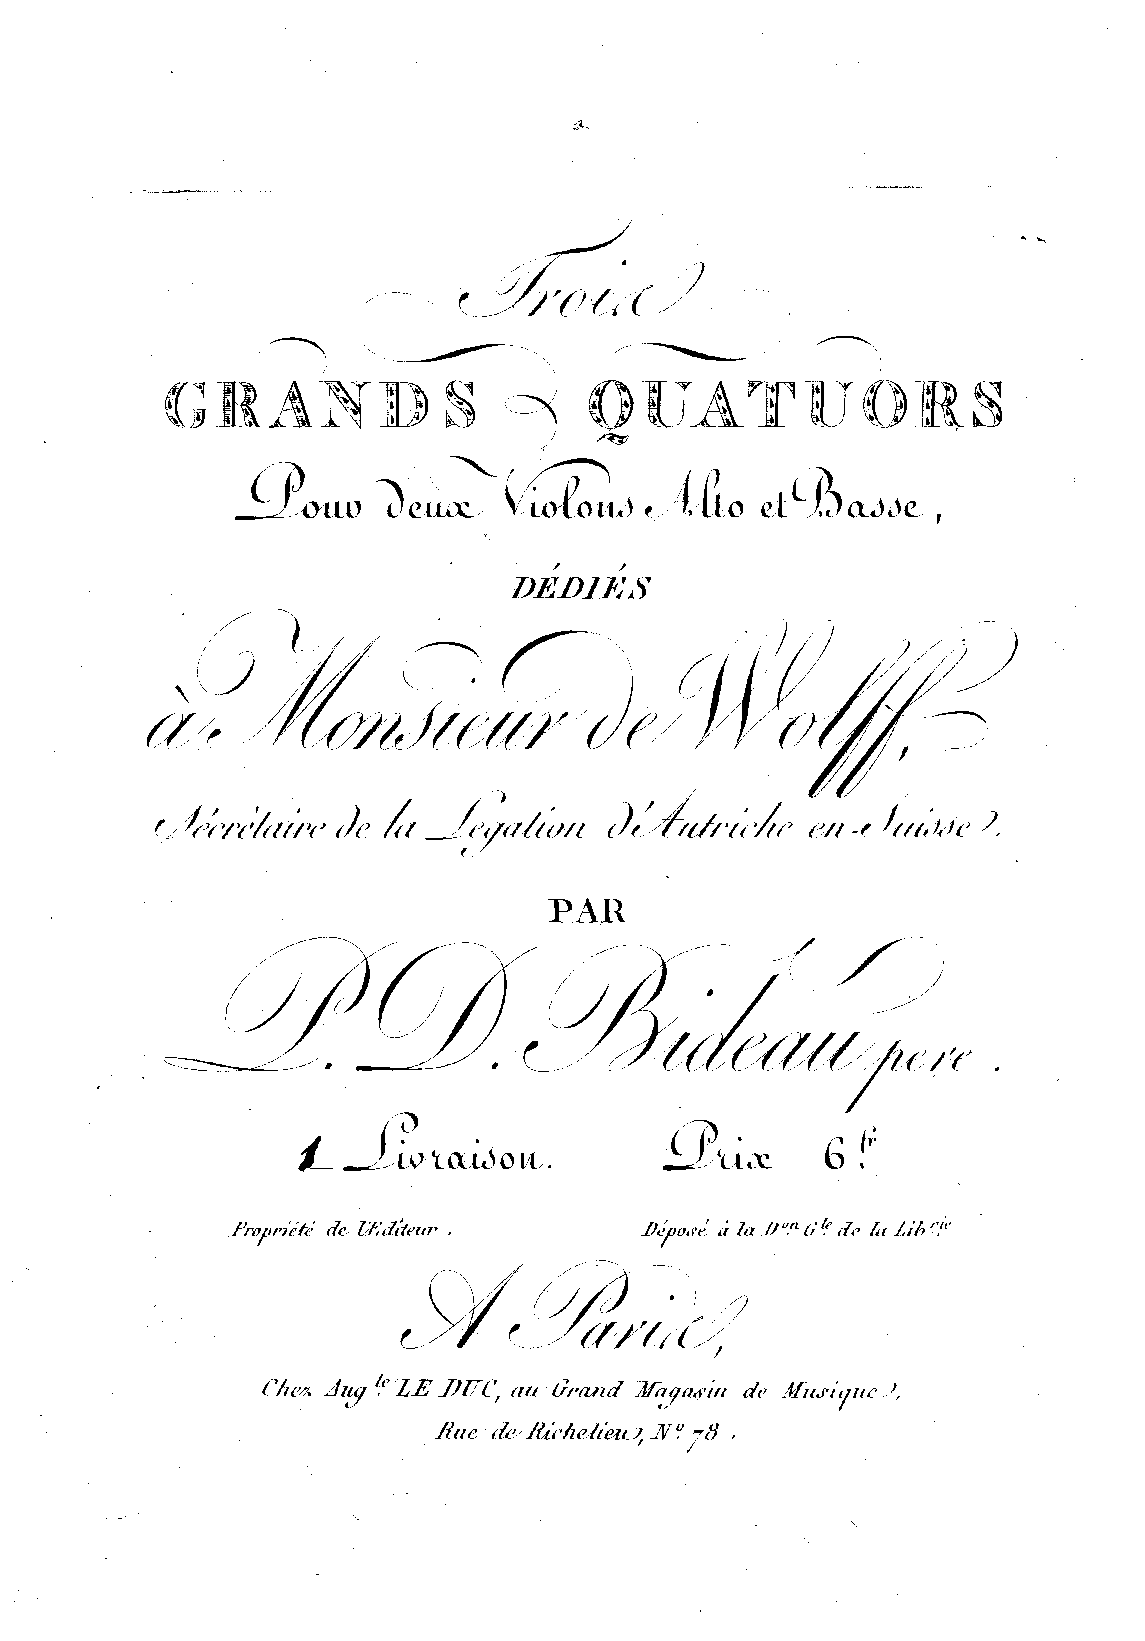 Trois
GRANDS QUATUORS
Pour deux Violons Alto et Basse,
DÉDIÉS
à Monsieur de Wolff,
Sécrétaire de la Legation d'Autriche en Suisse.
PAR
P. D. Bideau pere.
1 Livraison. Prix 6.fr
Propriété de l'Editeur. Déposé à la D.on G.le de la Lib.rie
A Paris,
Chez Aug.te LE DUC, au Grand Magasin de Musique,
Rue de Richelieu, N.o 78.